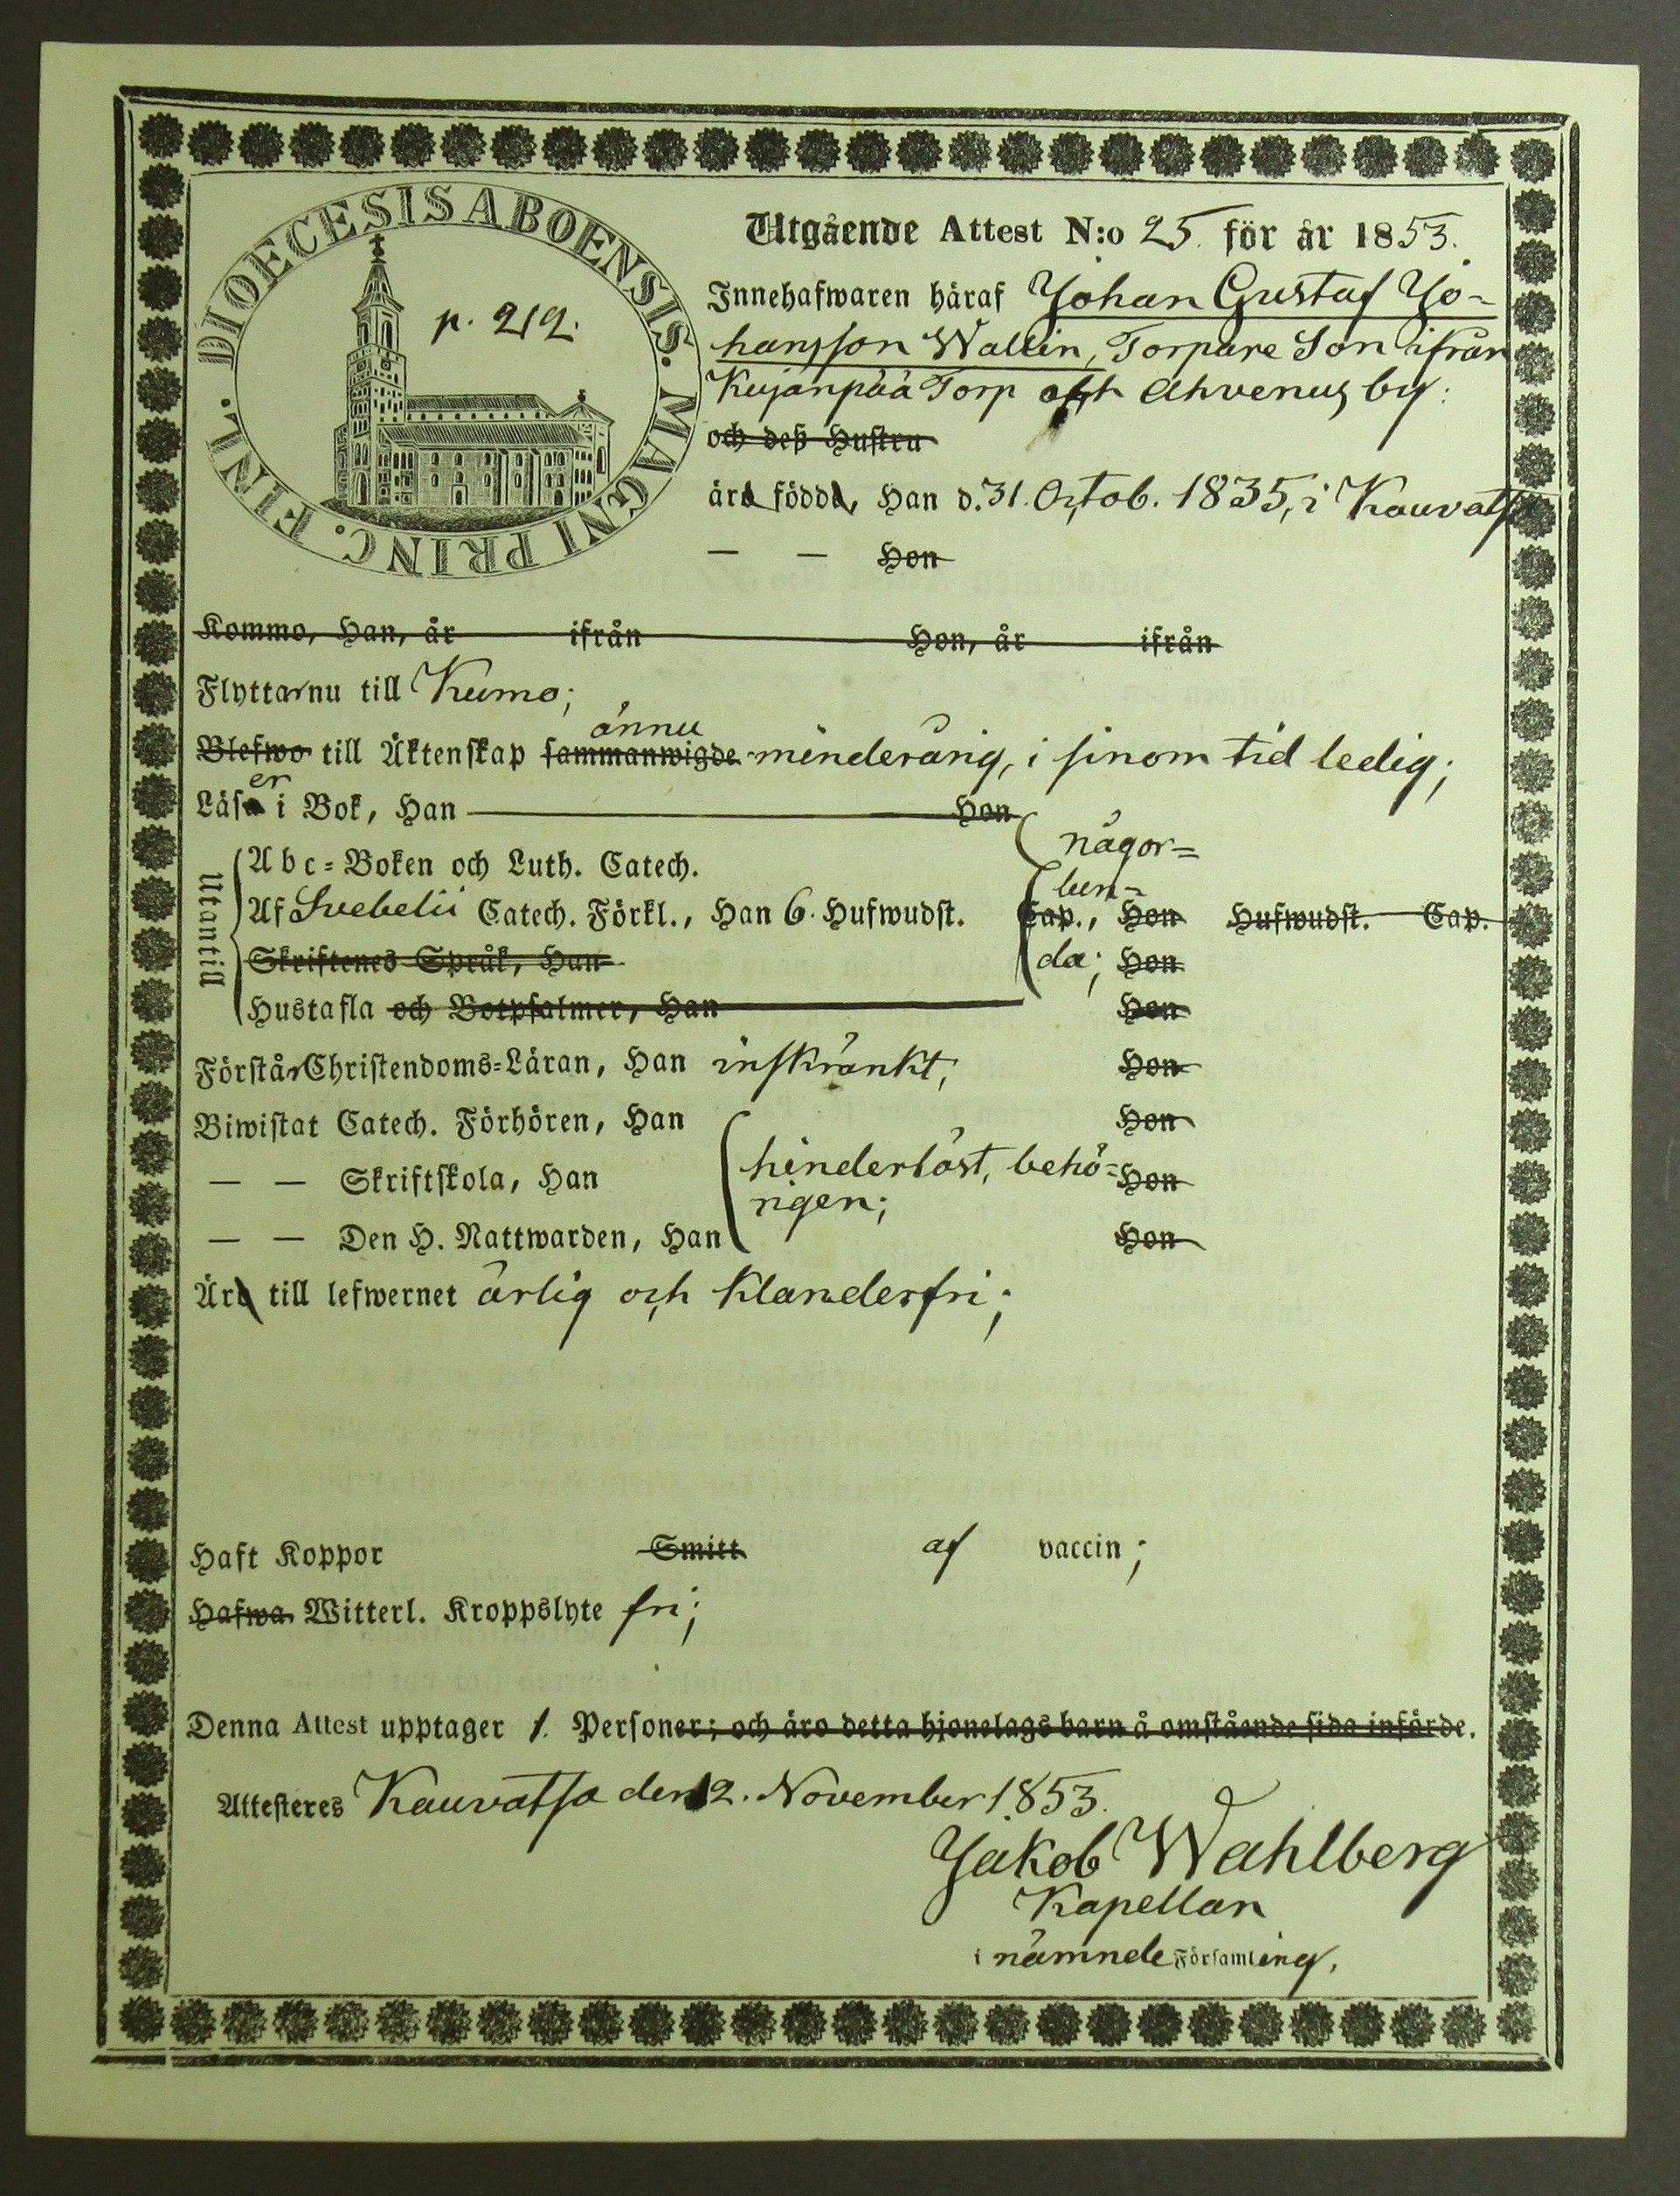 DIOECESIS ABOENSIS. MAGNI PRINC. FINL.
p. 212.
Utgående Attest N:o 25. för år 1853.
Innehafwaren häraf Johan Gustaf Jo-
hansson Wallin, Torpare Son ifrån
Kujanpää Torp Ahvenus by:
och deß Hustru
äro födde, Han d. 31. Octob. 1835, i Kauvatsa
— — Hon
Kommo, Han, år ifrån Hon, år ifrån
Flytta nu till Kumo;
ännu
Blefwo till Äktenskap sammanwigde minderårig, i sinom tid ledig;
er
Läsa i Bok, Han Hon
någor=
Abc=Boken och Luth. Catech.
lun=
Utantill
Af Svebelii Catech. Förkl., Han 6. Hufwudst. Cap., Hon Hufwudst. Cap.
Skriftenes Språk, Han da; Hon
Hustafla och Botpsalmer, Han Hon
Förstå Christendoms=Läran, Han inskränkt; Hon
Biwistat Catech. Förhören, Han Hon
— — Skriftskola, Han hinderlöst, behö= Hon
rigen;
— — Den H. Nattwarden, Han Hon
Äro till lefwernet ärlig och klanderfri;
Haft Koppor Smitt af vaccin;
Hafwa Witterl. Kroppslyte fri;
Denna Attest upptager 1. Personer; och äro detta hjonelags barn å omstående sida införde.
Attesteres Kauvatsa den 12. November 1853.
Jakob Wahlberg
Kapellan
i nämnde Församling.